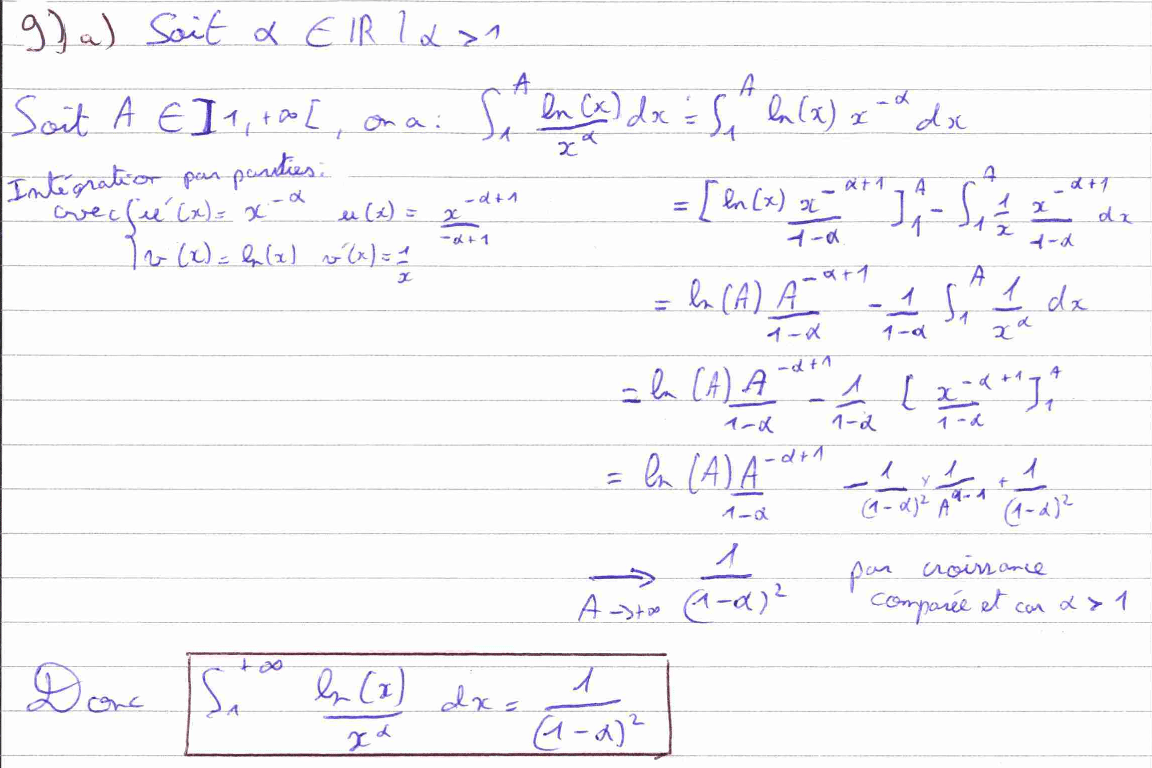 9) a) Soit α ∈ ℝ | α > 1
Soit A ∈ ]1, +∞[, on a : ∫₁^A ln(x)/x^α dx = ∫₁^A ln(x) x^(-α) dx
Intégration par parties :
avec { u'(x) = x^(-α)   u(x) = x^(-α+1)/(-α+1)
v(x) = ln(x)   v'(x) = 1/x
= [ln(x) x^(-α+1)/(1-α)]₁^A - ∫₁^A 1/x x^(-α+1)/(1-α) dx
= ln(A) A^(-α+1)/(1-α) - 1/(1-α) ∫₁^A 1/x^α dx
= ln(A) A^(-α+1)/(1-α) - 1/(1-α) [x^(-α+1)/(1-α)]₁^A
= ln(A) A^(-α+1)/(1-α) - 1/(1-α)² × 1/A^(α-1) + 1/(1-α)²
⟶ (A→+∞) 1/(1-α)²   par croissance
comparée et car α > 1
Donc ∫₁^(+∞) ln(x)/x^α dx = 1/(1-α)²